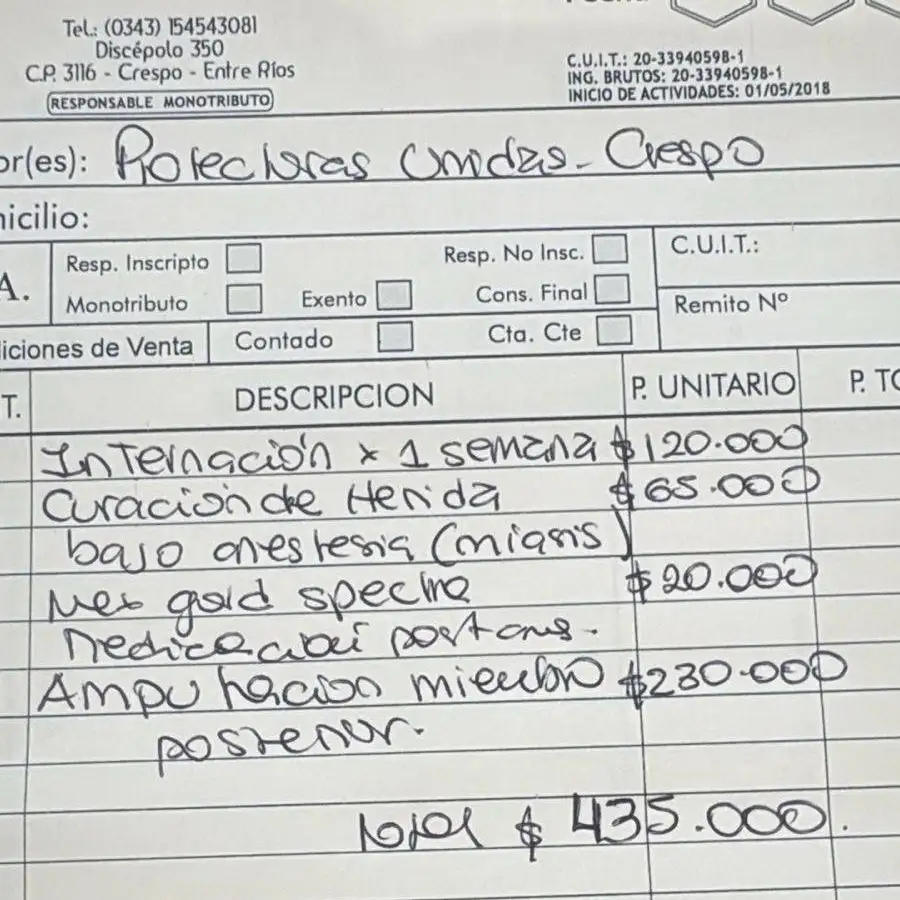 Tel.: (0343) 154543081
Discépolo 350
C.P. 3116 - Crespo - Entre Ríos
RESPONSABLE MONOTRIBUTO
C.U.I.T.: 20-33940598-1
ING. BRUTOS: 20-33940598-1
INICIO DE ACTIVIDADES: 01/05/2018
or(es): Protectoras Unidas - Crespo
nicilio:
A.
Resp. Inscripto
Resp. No Insc.
C.U.I.T.:
Monotributo
Exento
Cons. Final
Remito Nº
diciones de Venta
Contado
Cta. Cte
T. DESCRIPCION P. UNITARIO P. TO
Internación x 1 semana $120.000
Curación de Herida $65.000
bajo anestesia (miasis)
Nex gard spectra $20.000
Medicación
Amputación miembro $230.000
posterior.
Total $ 435.000.